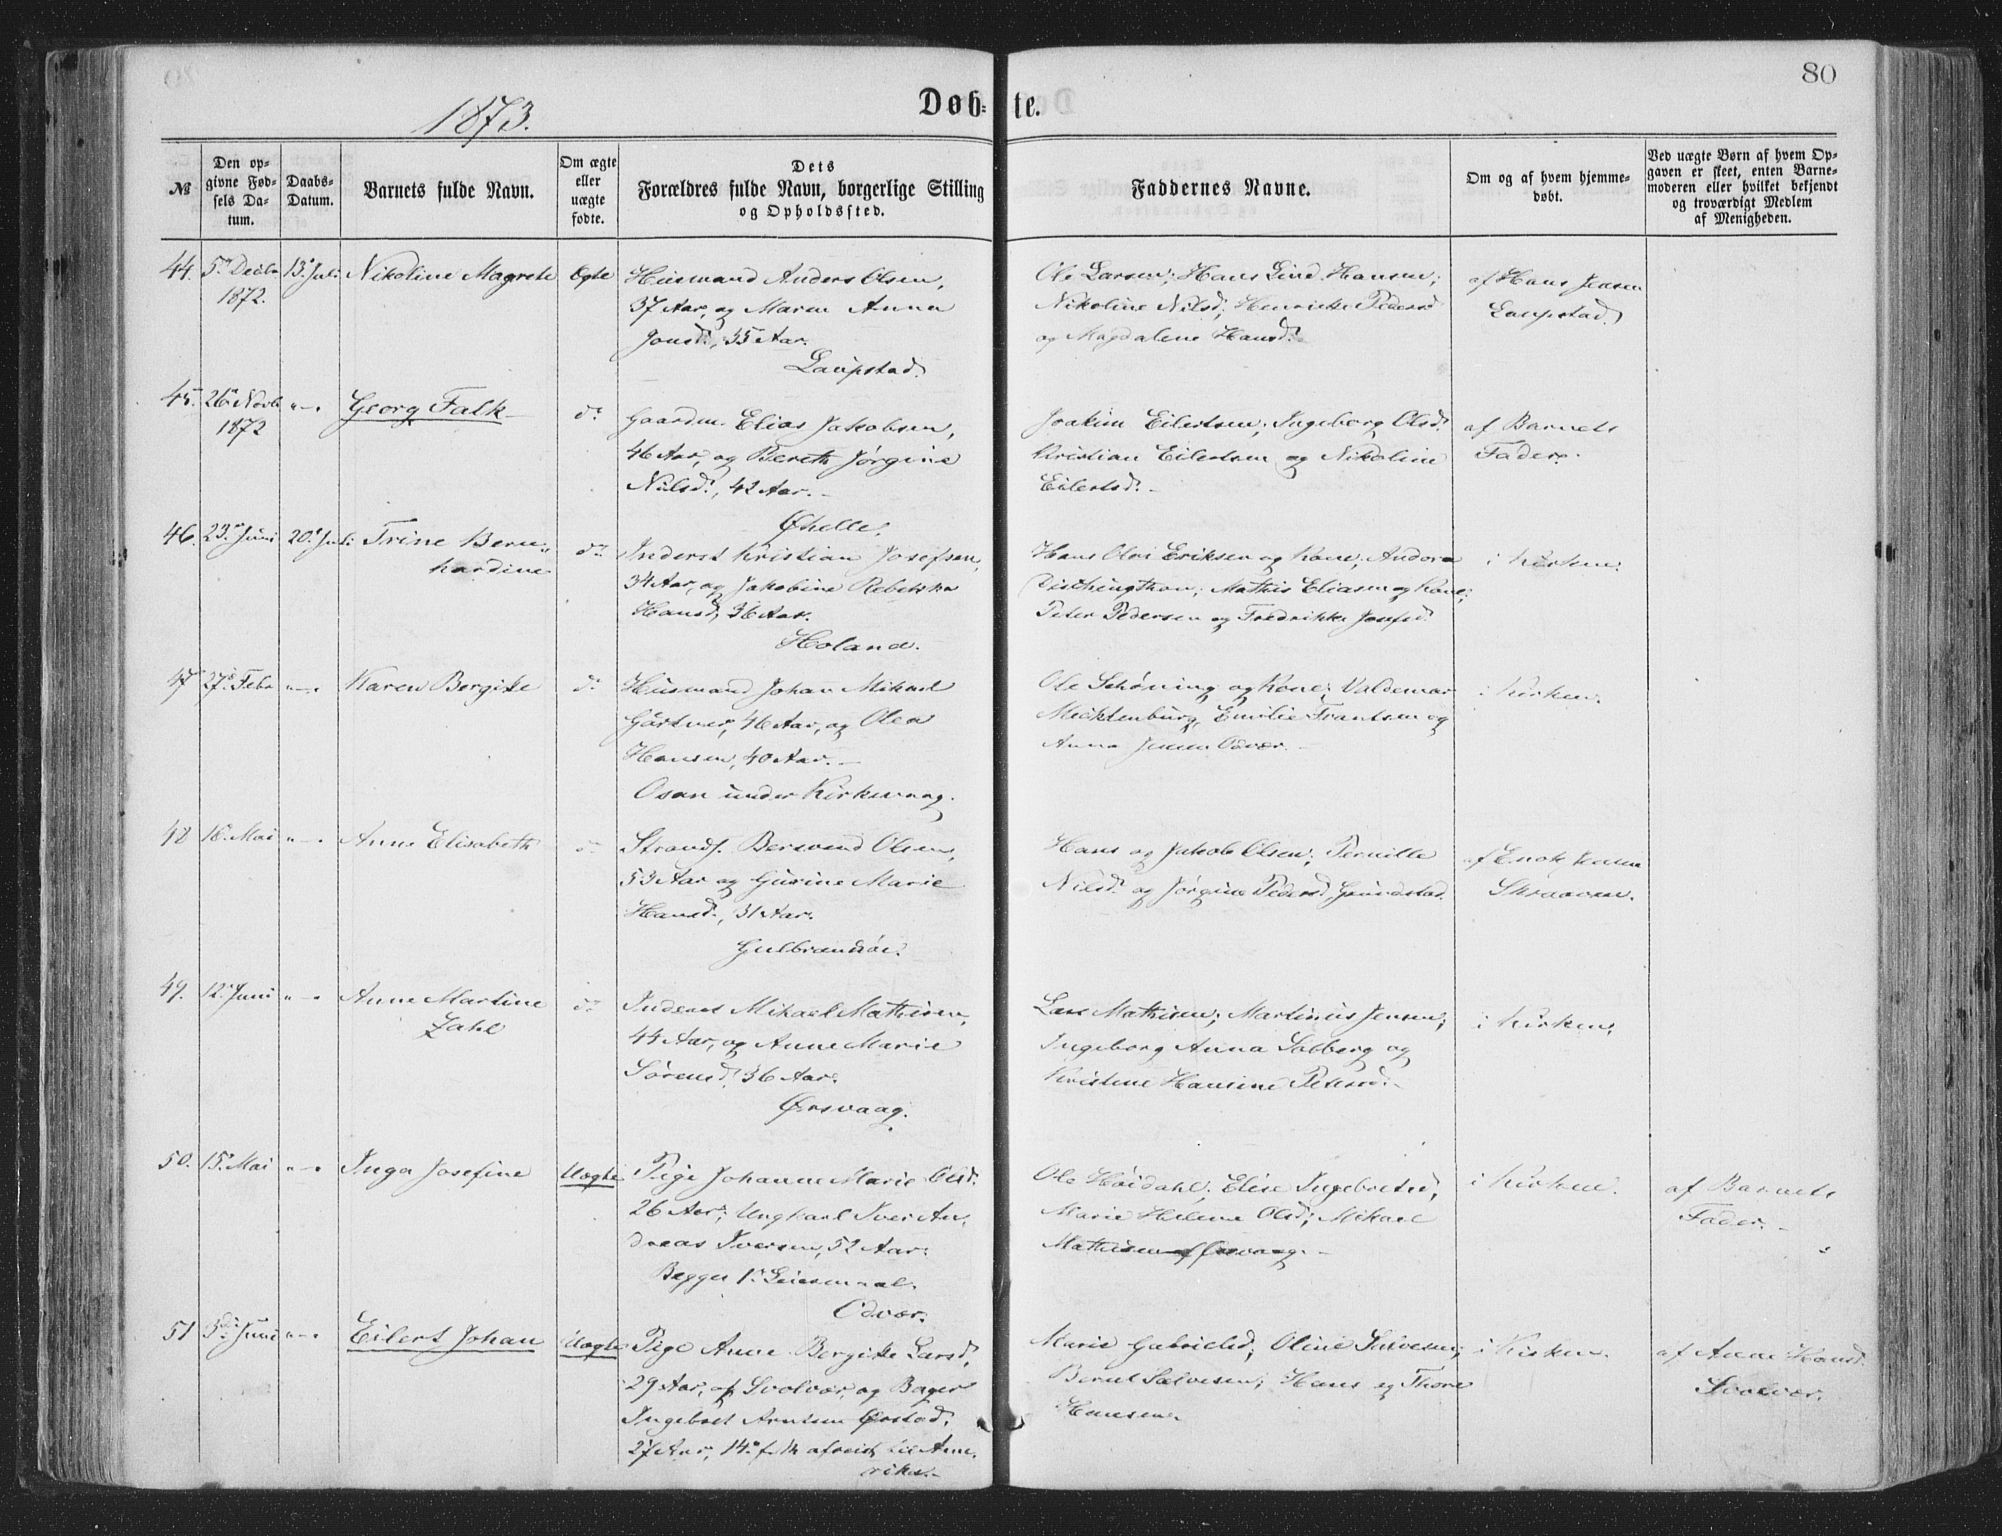 80
1873.
Døb=te.
№
Den op=
givne Fød=
sels Da=
tum.
Daabs=
Datum.
Barnets fulde Navn.
Om ægte
eller
uægte
fødte.
Dets
Forældres fulde Navn, borgerlige Stilling
og Opholdssted.
Faddernes Navne.
Om og af hvem hjemme=
døbt.
Ved uægte Børn af hvem Op=
gaven er skeet, enten Barne=
moderen eller hvilket bekjendt
og troværdigt Medlem
af Menigheden.
44. 5te Decbr 13de Juli Nikoline Magrete Ægte
1872.
Husmand Anders Olsen,
37 Aar, og Maren Anna
Jonsd., 35 Aar.
Laupstad.
Ole Larsen; Hans Lind Hansen;
Nikoline Nilsd; Henrikke Pedersd
og Magdalene Hansd.
af Hans Jensen
Laupstad.
45. 26de Novbr "—" Georg Falk do
1872
Gaardm. Elias Jakobsen,
46 Aar, og Bereth Jørgine
Nilsd., 42 Aar. –
Øhelle.
Joakim Eilertsen; Ingeborg Olsd.
Kristian Eilertsen og Nikoline
Eilertsd. –
af Barnets
Fader.
46. 23de Juni 20de Juli Trine Bern=
hardine do
Inderst Kristian Josefsen,
34 Aar, og Jakobine Rebekka
Hansd, 36 Aar.
Holand.
Hans Olai Eriksen og Kone; Andora
Mathis Eliasen og Kone;
Peter Pedersen og Fredrikke Josefsd.
i Kirken.
47 27de Febr "—" Karen Bergitte do
Husmand Johan Mikael
Gärtner, 46 Aar, og Olea
Hansen, 40 Aar. –
Osan under Kirkevaag.
Ole Schøning og Kone; Valdemar
Mecklenburg, Emilie Frantsen og
Anna Jensen Odvær. –
i Kirken.
48 18. Mai "—" Anne Elisabeth do
Strands. Bersvend Olsen,
53 Aar og Gurine Marie
Hansd., 31 Aar.
Gulbrandsøe.
Hans og Jakob Olsen; Pernille
Nilsd. og Jørgine Pedersd. Grundstad.
af Enok Jensen
Skraaven.
49. 12. Juni "—" Anne Martine
Zahl do
Inderst Mikael Mathisen,
44 Aar, og Anne Marie
Sørensd. 36 Aar.
Ørsvaag.
Lars Mathisen; Martinus Jensen;
Ingeborg Anna Solberg og
Kristine Hansine Petersd. –
i Kirken.
50. 15. Mai "—" Inga Josefine Uægte
Pige Johanne Marie Olsd.
26 Aar; Ungkarl Iver An=
dreas Iversen, 52 Aar.
Begges 1ste Leiermaal.
Odvær.
Ole Høidahl; Elise Ingebretsd,
Marie Helene Olsd; Mikael
Mathisen af Ørsvaag. –
i Kirken.
af Barnets
Fader. –
51 3die Juni "—" Eilert Johan Uægte
Pige Anne Bergitte Larsd,
29 Aar, af Svolvær, og Bager
Ingebret Arntsen Ørstad,
27 Aar, 14de f. M. afreist til Ame=
rika. –
Marie Gabrielsd; Oline Salvesen;
Bernt Salvesen; Hans og Thore
Hansen.
i Kirken.
af Anne Hansd.
Svolvær.